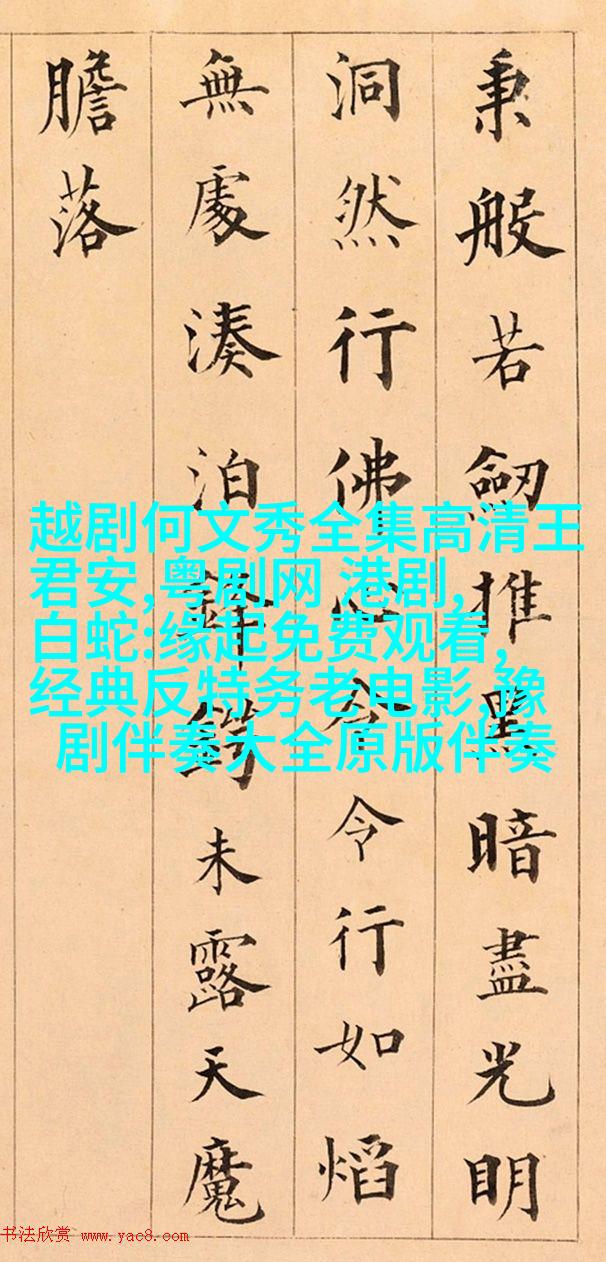 秉般若劔推黑暗盡光明
洞然行佛心公令行如熖
無處湊泊鋒鍔未露天魔
膽落
越剧何文秀全集高清王
君安,粤剧网 港剧,
白蛇:缘起免费观看,
经典反特务老电影,豫
剧伴奏大全原版伴奏
书法欣赏 www.yac8.com